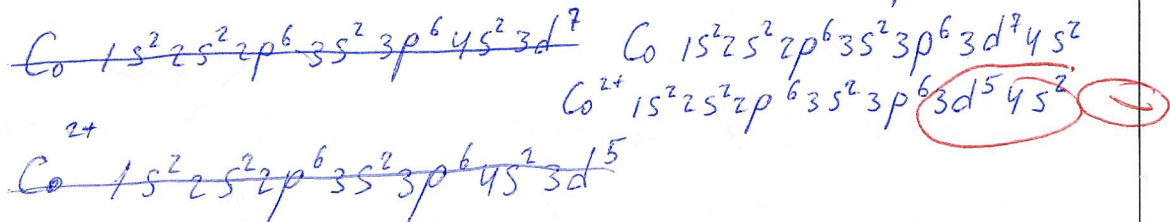 Co 1s² 2s² 2p⁶ 3s² 3p⁶ 4s² 3d⁷
Co 1s² 2s² 2p⁶ 3s² 3p⁶ 3d⁷ 4s²
Co²⁺ 1s² 2s² 2p⁶ 3s² 3p⁶ 3d⁵ 4s²
Co²⁺ 1s² 2s² 2p⁶ 3s² 3p⁶ 4s² 3d⁵